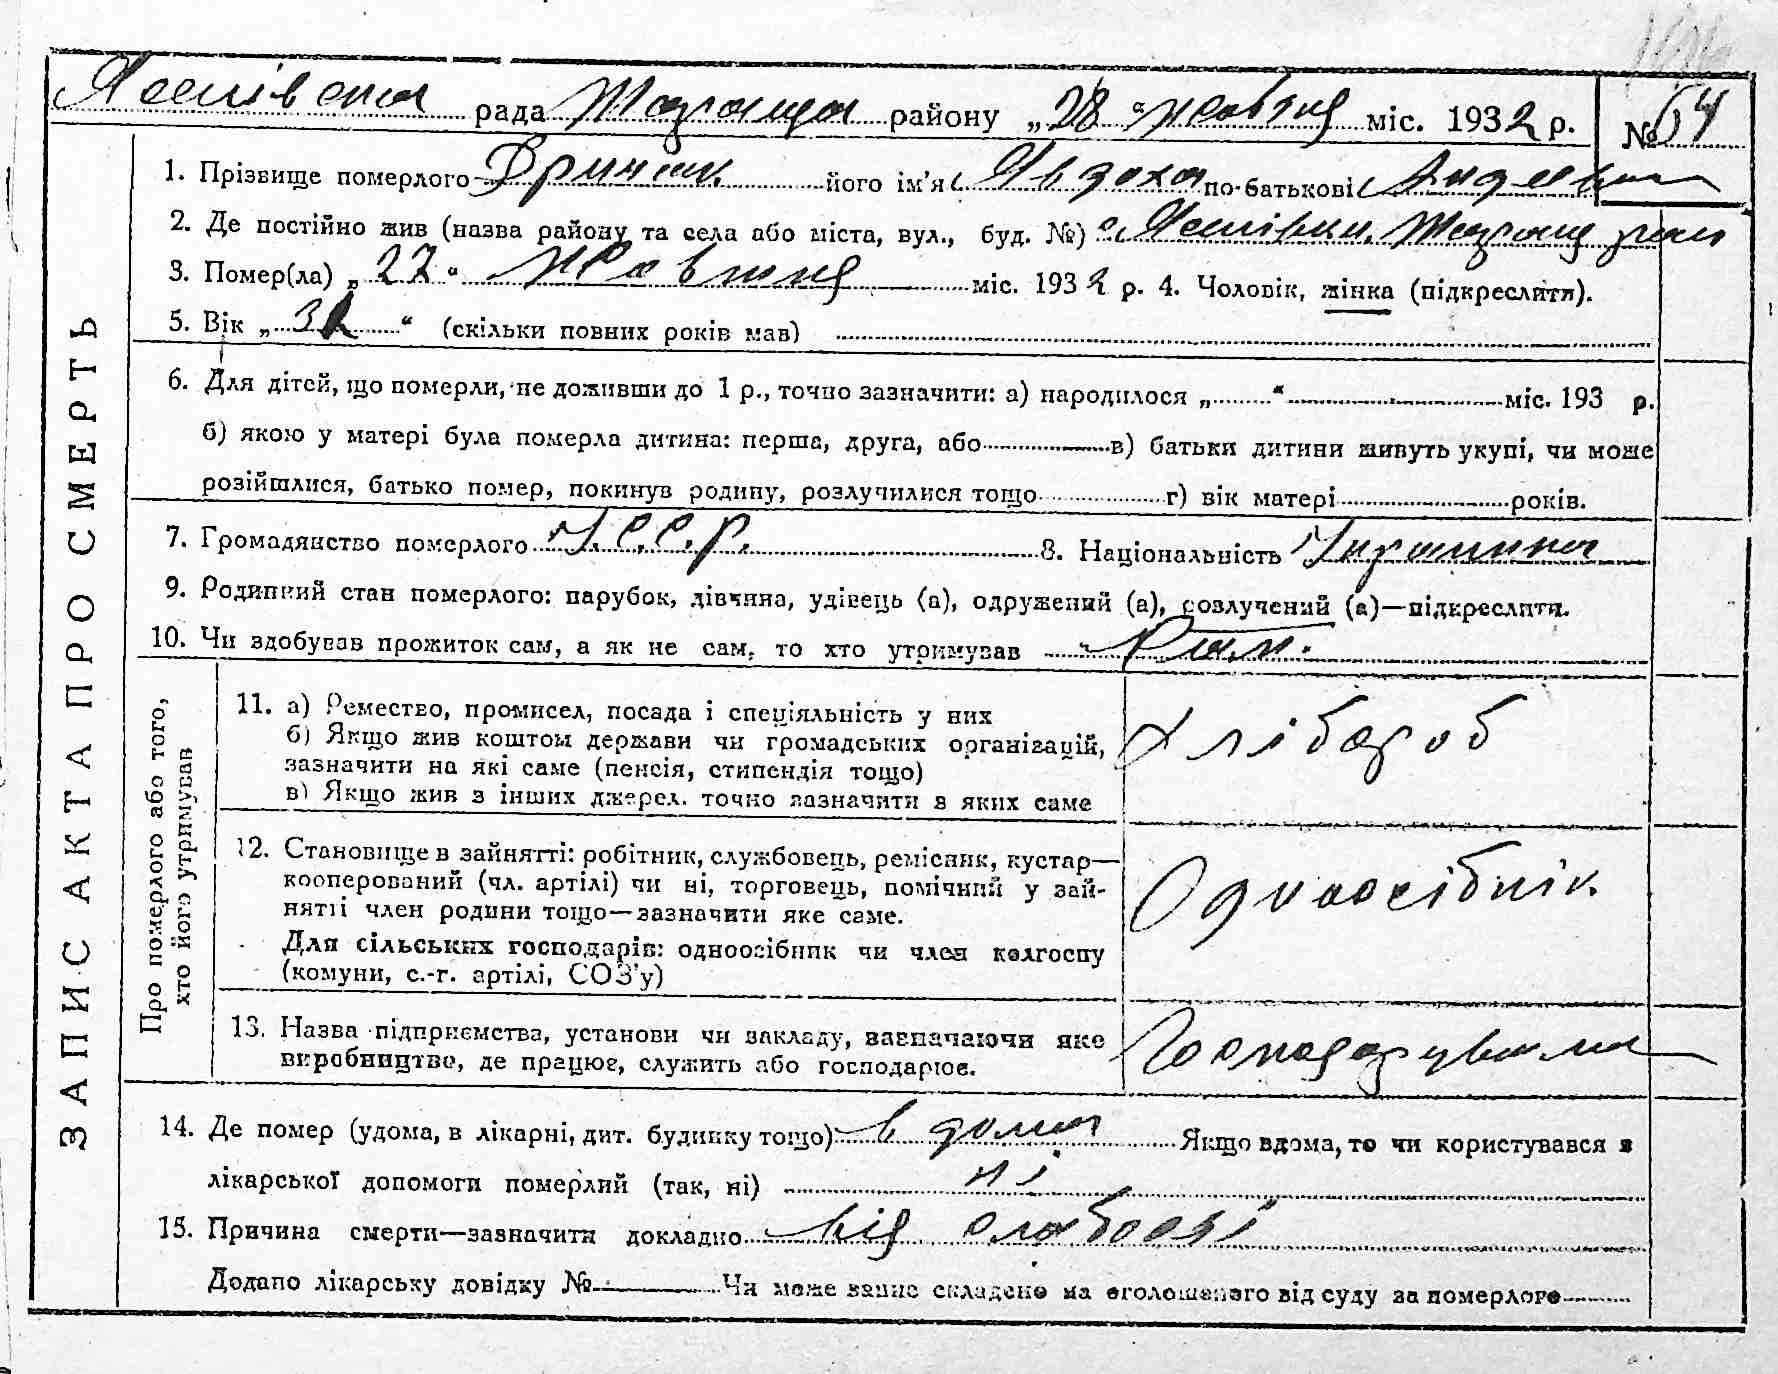 рада района району „28“ жовтня міс. 1932 р. № 64
1. Прізвище померлого його ім'я Явдоха по-батькові
2. Де постійно жив (назва району та села або міста, вул., буд. №)
3. Помер(ла) „27“ жовтня міс. 1932 р. 4. Чоловік, жінка (підкреслити).
5. Вік „32“ (скільки повних років мав)
6. Для дітей, що померли, не доживши до 1 р., точно зазначити: а) народилося „ “ міс. 193 р.
б) якою у матері була померла дитина: перша, друга, або в) батьки дитини живуть укупі, чи може
розійшлися, батько помер, покинув родину, розлучилися тощо г) вік матері років.
7. Громадянство померлого У.С.С.Р. 8. Національність Українка
9. Родинний стан померлого: парубок, дівчина, удівець (а), одружений (а), розлучений (а)—підкреслити.
10. Чи здобував прожиток сам, а як не сам, то хто утримував
ЗАПИС АКТА ПРО СМЕРТЬ
Про померлого або того,
хто його утримував
11. а) Ремество, промисел, посада і спеціяльність у них
б) Якщо жив коштом держави чи громадських організацій,
зазначити на які саме (пенсія, стипендія тощо)
в) Якщо жив з інших джерел, точно зазначити з яких саме
Хлібороб
12. Становище в зайнятті: робітник, службовець, ремісник, кустар—
кооперований (чл. артілі) чи ні, торговець, помічний у зай-
нятті член родини тощо—зазначити яке саме.
Для сільських господарів: одноосібник чи член колгоспу
(комуни, с.-г. артілі, СОЗ'у)
Одноосібнік
13. Назва підприємства, установи чи закладу, зазначаючи яке
виробництво, де працює, служить або господарює.
Господарувала
14. Де помер (удома, в лікарні, дит. будинку тощо) в дома Якщо вдома, то чи користувався з
лікарської допомоги померлий (так, ні) ні
15. Причина смерти—зазначити докладно від слабості
Додано лікарську довідку № Чи може запис складено на оголошеного від суду за померлого